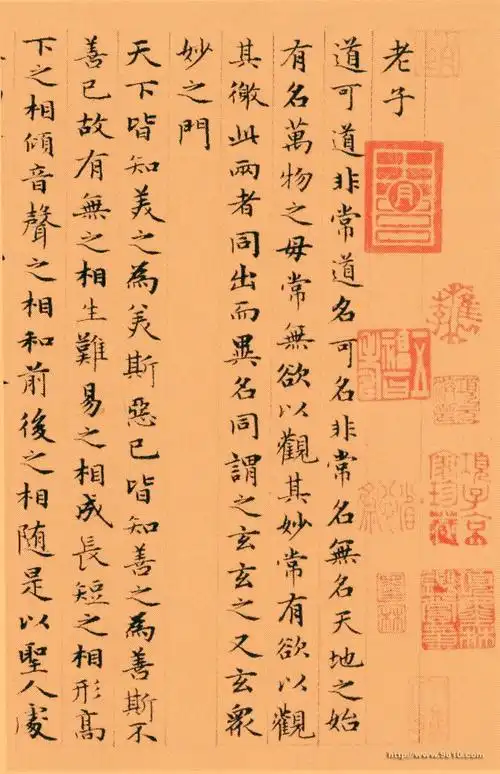 老子
道可道非常道名可名非常名無名天地之始
有名萬物之母常無欲以觀其妙常有欲以觀
其徼此兩者同出而異名同謂之玄玄之又玄眾
妙之門
天下皆知美之為美斯惡已皆知善之為善斯不
善已故有無之相生難易之相成長短之相形高
下之相傾音聲之相和前後之相随是以聖人處
項子京家珍藏
http://www.9610.com